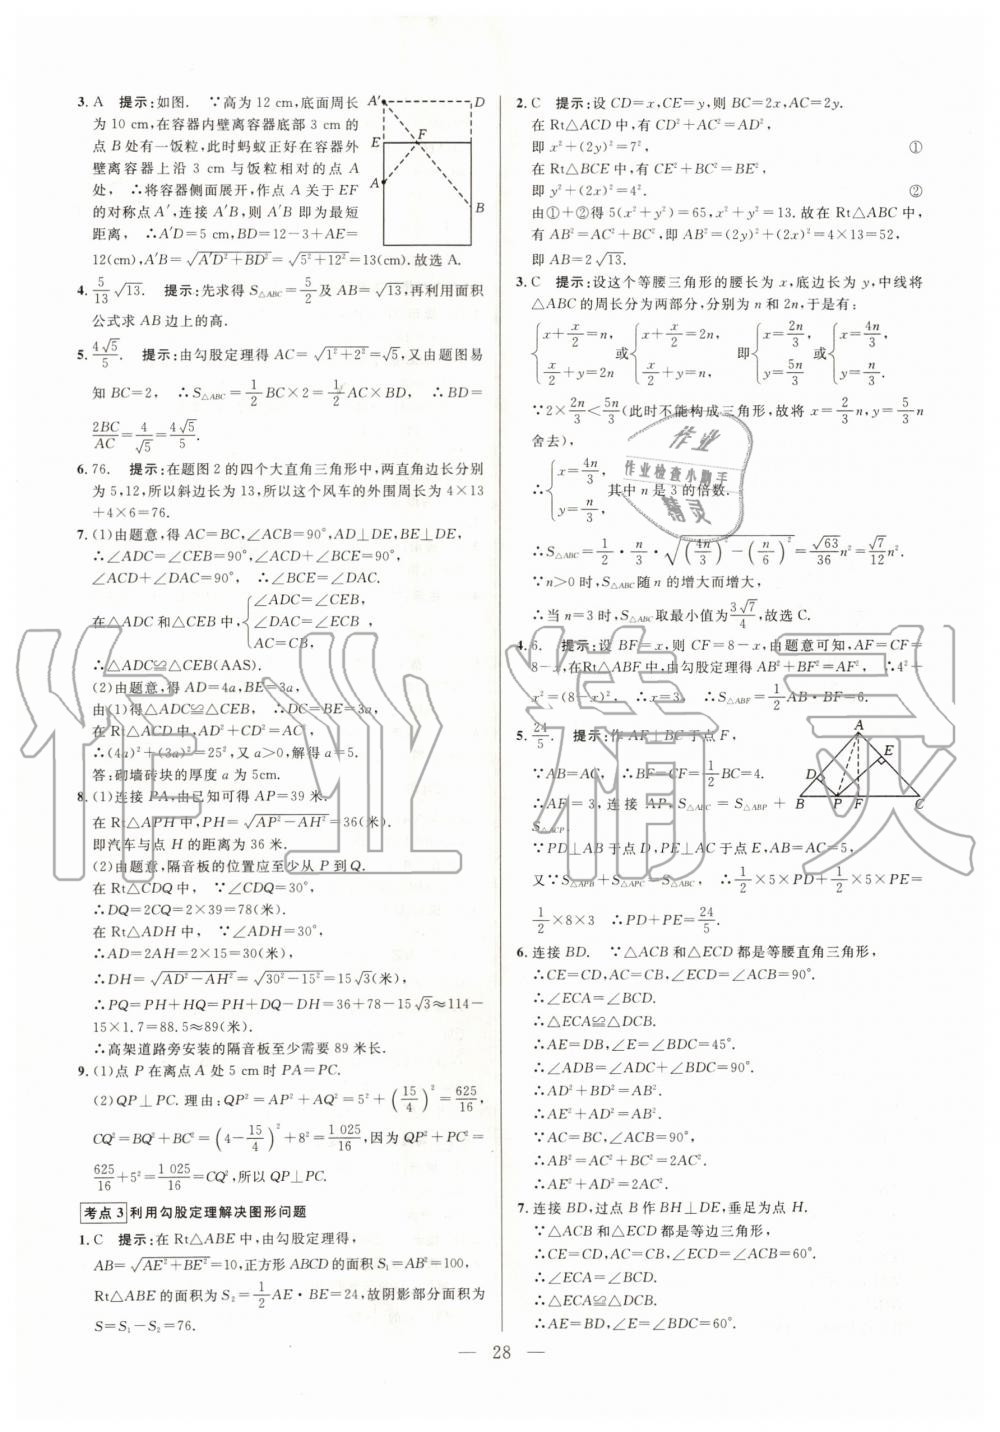 3. A 提示:如图. ∵高为 12 cm,底面周长
为 10 cm,在容器内壁离容器底部 3 cm 的
点 B 处有一饭粒,此时蚂蚁正好在容器外
壁离容器上沿 3 cm 与饭粒相对的点 A
处, ∴将容器侧面展开,作点 A 关于 EF
的对称点 A′,连接 A′B,则 A′B 即为最短
距离, ∴A′D=5 cm,BD=12-3+AE=
12(cm),A′B=√(A′D²+BD²)=√(5²+12²)=13(cm).故选 A.
A′ D
E F
A
B
4. 5/13 √13. 提示:先求得 S△ABC=5/2 及 AB=√13,再利用面积
公式求 AB 边上的高.
5. 4√5/5. 提示:由勾股定理得 AC=√(1²+2²)=√5,又由题图易
知 BC=2, ∴S△ABC=1/2 BC×2=1/2 AC×BD, ∴BD=
2BC/AC=4/√5=4√5/5.
6. 76. 提示:在题图 2 的四个大直角三角形中,两直角边长分别
为 5,12,所以斜边长为 13,所以这个风车的外围周长为 4×13
+4×6=76.
7. (1)由题意,得 AC=BC,∠ACB=90°,AD⊥DE,BE⊥DE,
∴∠ADC=∠CEB=90°,∠ACD+∠BCE=90°,
∠ACD+∠DAC=90°, ∴∠BCE=∠DAC.
在△ADC 和△CEB 中,{∠ADC=∠CEB,
∠DAC=∠ECB ,
AC=CB,
∴△ADC≌△CEB(AAS).
(2)由题意,得 AD=4a,BE=3a,
由(1)得△ADC≌△CEB, ∴DC=BE=3a.
在 Rt△ACD 中,AD²+CD²=AC²,
∴(4a)²+(3a)²=25²,又∵a>0,解得 a=5.
答:砌墙砖块的厚度 a 为 5cm.
8. (1)连接 PA,由已知可得 AP=39 米.
在 Rt△APH 中,PH=√(AP²-AH²)=36(米).
即汽车与点 H 的距离为 36 米.
(2)由题意,隔音板的位置应至少从 P 到 Q.
在 Rt△CDQ 中, ∵∠CDQ=30°,
∴DQ=2CQ=2×39=78(米).
在 Rt△ADH 中, ∵∠ADH=30°,
∴AD=2AH=2×15=30(米),
∴DH=√(AD²-AH²)=√(30²-15²)=15√3(米),
∴PQ=PH+HQ=PH+DQ-DH=36+78-15√3≈114-
15×1.7=88.5≈89(米).
∴高架道路旁安装的隔音板至少需要 89 米长.
9. (1)点 P 在离点 A 处 5 cm 时 PA=PC.
(2)QP⊥PC.理由:QP²=AP²+AQ²=5²+(15/4)²=625/16,
CQ²=BQ²+BC²=(4-15/4)²+8²=1 025/16,因为 QP²+PC²=
625/16+5²=1 025/16=CQ²,所以 QP⊥PC.
考点 3 利用勾股定理解决图形问题
1. C 提示:在 Rt△ABE 中,由勾股定理得,
AB=√(AE²+BE²)=10,正方形 ABCD 的面积 S₁=AB²=100,
Rt△ABE 的面积为 S₂=1/2 AE·BE=24,故阴影部分面积为
S=S₁-S₂=76.
2. C 提示:设 CD=x,CE=y,则 BC=2x,AC=2y.
在 Rt△ACD 中,有 CD²+AC²=AD²,
即 x²+(2y)²=7², ①
在 Rt△BCE 中,有 CE²+BC²=BE²,
即 y²+(2x)²=4². ②
由①+②得 5(x²+y²)=65,x²+y²=13.故在 Rt△ABC 中,
有 AB²=AC²+BC²,即 AB²=(2y)²+(2x)²=4×13=52,
即 AB=2√13.
3. C 提示:设这个等腰三角形的腰长为 x,底边长为 y,中线将
△ABC 的周长分为两部分,分别为 n 和 2n,于是有:
{x+x/2=n, x/2+y=2n 或{x+x/2=2n, x/2+y=n 即{x=2n/3, y=5n/3 或{x=4n/3, y=n/3.
∵2×2n/3<5n/3(此时不能构成三角形,故将 x=2/3 n,y=5/3 n
舍去),
∴{x=4n/3, y=n/3, 其中 n 是 3 的倍数.
∴S△ABC=1/2·n/3·√((4n/3)²-(n/6)²)=√63/36 n²=√7/12 n².
∵n>0 时,S△ABC随 n 的增大而增大,
∴当 n=3 时,S△ABC取最小值为 3√7/4,故选 C.
4. 6. 提示:设 BF=x,则 CF=8-x,由题意可知,AF=CF=
8-x,在Rt△ABF 中,由勾股定理得 AB²+BF²=AF², ∴4²+
x²=(8-x)², ∴x=3. ∴S△ABF=1/2 AB·BF=6.
5. 24/5. 提示:作 AF⊥BC 于点 F,
∵AB=AC, ∴BF=CF=1/2 BC=4.
∴AF=3,连接 AP,S△ABC=S△ABP+
S△ACP.
A
D E
B P F C
∵PD⊥AB 于点 D,PE⊥AC 于点 E,AB=AC=5,
又∵S△APB+S△APC=S△ABC, ∴1/2×5×PD+1/2×5×PE=
1/2×8×3 ∴PD+PE=24/5.
6. 连接 BD. ∵△ACB 和△ECD 都是等腰直角三角形,
∴CE=CD,AC=BC,∠ECD=∠ACB=90°.
∴∠ECA=∠BCD.
∴△ECA≌△DCB.
∴AE=DB,∠E=∠BDC=45°.
∴∠ADB=∠ADC+∠BDC=90°.
∴AD²+BD²=AB².
∴AE²+AD²=AB².
∵AC=BC,∠ACB=90°.
∴AB²=AC²+BC²=2AC².
∴AE²+AD²=2AC².
7. 连接 BD,过点 B 作 BH⊥DE,垂足为点 H.
∵△ACB 和△ECD 都是等边三角形,
∴CE=CD,AC=BC,∠ECD=∠ACB=60°.
∴∠ECA=∠BCD.
∴△ECA≌△DCB.
∴AE=BD,∠E=∠BDC=60°.
— 28 —
作业
作业检查小助手
精灵
作业精灵